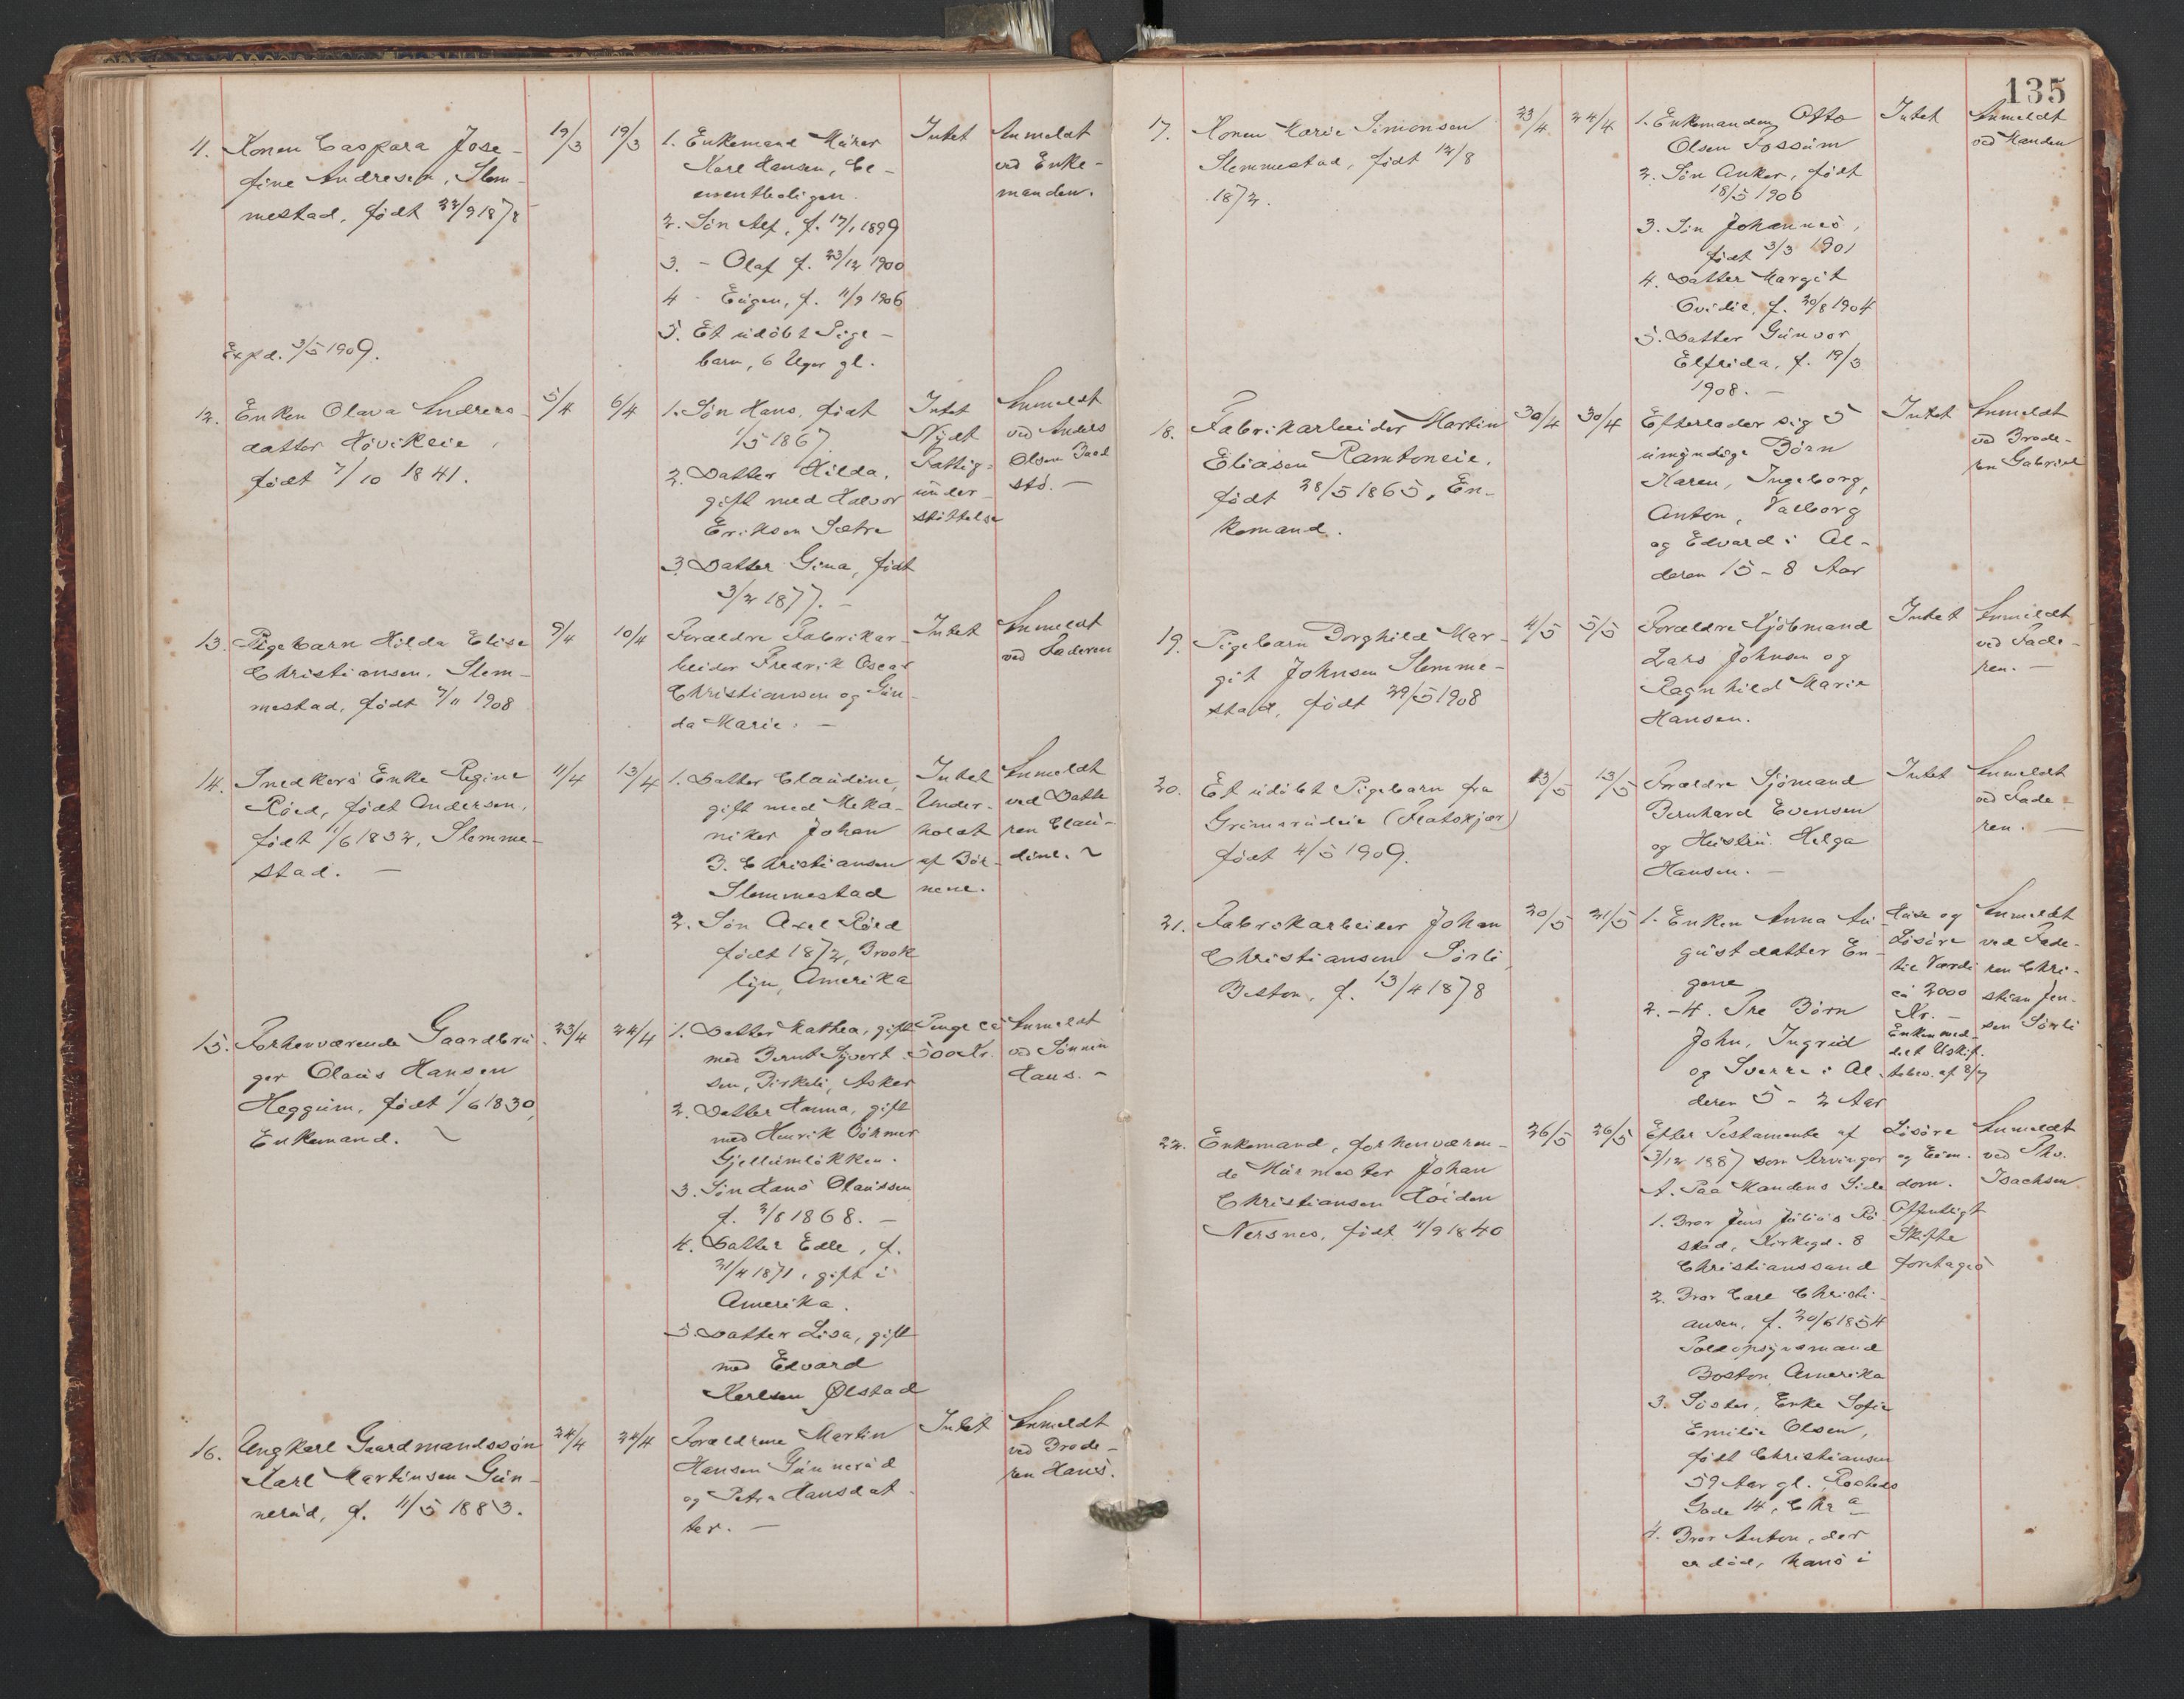 135
11. Konen Caspara Jose-
fine Andresen, Slem-
mestad, født 22/9 1878
Expd. 3/5 1909.
19/3
19/3
1. Enkemand Murer
Karl Hansen, Ce-
mentboligen.
2. Søn Alf, f. 17/1 1899
3. - Olaf f. 23/12 1900
4 - Eugen, f. 11/9 1906
5. Et udöbt Pige-
barn, 6 Uger gl.
Intet
Anmeldt
ved Enke-
manden.
12. Enken Olava Anders-
datter Hövikeie,
født 7/10 1841.
5/4
6/4
1. Søn Hans, født
1/5 1867
2. Datter Hilda,
gift med Halvor
Eriksen Sætre
3. Datter Gina, født
3/2 1877. -
Intet
Nydt
Fattig-
under-
støttelse
Anmeldt
ved Anders
Olsen Baad
stö. -
13. Pigebarn Hilda Elise
Christiansen, Slem-
mestad, født 7/11 1908
9/4
10/4
Forældre Fabrikar-
beider Fredrik Oscar
Christiansen og Gun-
da Marie. -
Intet
Anmeldt
ved Faderen
14. Snedkers Enke Regine
Röed, født Andersen,
født 1/6 1832, Slemme-
stad. -
11/4
13/4
1. Datter Claudine,
gift med Meka-
niker Johan
B. Christiansen
Slemmestad
2. Søn Axel Röed
født 1872, Brook
lyn, Amerika
Intet
Under-
holdt
af Bör-
nene.
Anmeldt
ved Datte
ren Clau-
dine.
15. Forhenværende Gaardbru-
ger Olaus Hansen
Heggum, født 1/6 1830,
Enkemand.
23/4
24/4
1. Datter Mathea, gift
med Bernt Syvert
sen, Birkeli, Asker
2. Datter Hanna, gift
med Henrik Böhmer
Gjellumlökken.
3. Søn Hans Olaussen
f. 3/8 1868. -
4. Datter Edle, f.
21/4 1871, gift i
Amerika.
5. Datter Lisa, gift
med Edvard
Karlsen Ølstad
Penge ca
500 Kr.
Anmeldt
ved Sønnen
Hans. -
16. Ungkarl Gaardmandssøn
Karl Martinsen Gun-
nerud, f. 11/5 1883.
24/4
24/4
Forældrene Martin
Hansen Gunnerud
og Petra Hansdat-
ter. -
Intet
Anmeldt
ved Brode-
ren Hans.
17. Konen Marie Simonsen
Slemmestad, født 12/8
1872.
23/4
24/4
1. Enkemanden Otto
Olsen Fossum
2. Søn Anker, født
18/5 1906
3. Søn Johannes,
født 3/3 1901
4. Datter Margit
Ovidie, f. 30/8 1904
5. Datter Gunvor
Elfrida, f. 19/3
1908. -
Intet
Anmeldt
ved Manden
18. Fabrikarbeider Martin
Eliasen Ramtoneie,
født 28/5 1865, En-
kemand.
30/4
30/4
Efterlader sig 5
umyndige Börn
Karen, Ingeborg,
Anton, Valborg
og Edvard i Al-
deren 15 - 8 Aar
Intet
Anmeldt
ved Brode-
ren Gabriel
19. Pigebarn Borghild Mar-
git Johnsen Slemme-
stad, født 29/5 1908
4/5
5/5
Forældre Sjömand
Lars Johnsen og
Ragnhild Marie
Hansen.
Intet
Anmeldt
ved Fade-
ren. -
20. Et udöbt Pigebarn fra
Grimsrudeie (Flatskjær)
født 4/5 1909.
13/5
13/5
Forældre Sjömand
Bernhard Evensen
og Hustru Helga
Hansen. -
Intet
Anmeldt
ved Fade-
ren. -
21. Fabrikarbeider Johan
Christiansen Sörli,
Boston, f. 13/4 1878
20/5
21/5
1. Enken Anna Au-
gustdatter En-
gene
2.-4. Tre Börn
John, Ingrid
og Sverre i Al-
deren 5 - 2 Aar
Huse og
Lösöre
til Værdi
ca 2000
Kr. -
Enken med-
delt Uskif-
Anmeldt
ved Fade-
ren Chri-
stian Jen-
sen Sörli
22. Enkemand, forhenværen-
de Murmester Johan
Christiansen Höiden
Nersnes, født 11/9 1840
26/5
26/5
Efter Testamente af
3/12 1887 som Arvinger
A. Paa Mandens Side
1. Bror Jens Julius Rö-
stad, Kirkegd. 8
Christianssand
2. Bror Carl Christi-
ansen, f. 20/6 1854
Toldopsynsmand
Boston Amerika
3. Söster, Enke Sofie
Emilie Olsen,
født Christiansen
59 Aar gl.,
Gade 14, Chr a
4. Bror Anton, der
er död, hans i
Lösöre
og Eien-
dom.
Offentligt
Skifte
foretages
Anmeldt
ved Thv.
Isachsen